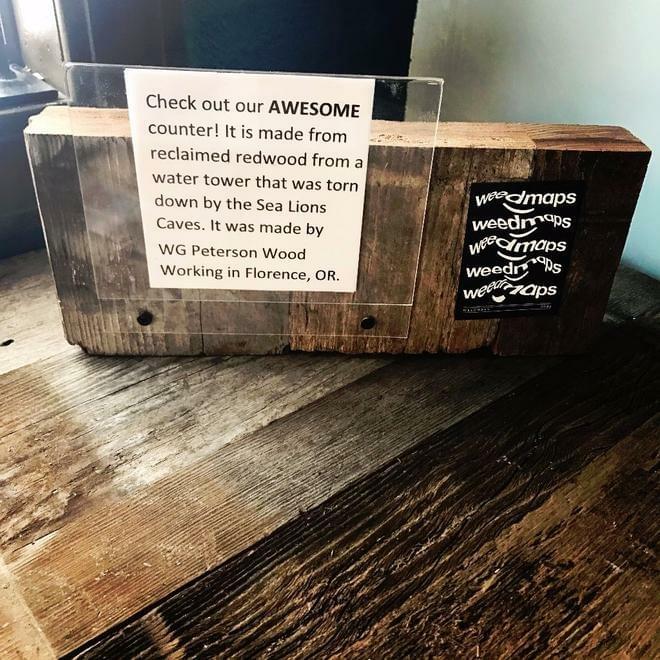 Check out our AWESOME
counter! It is made from
reclaimed redwood from a
water tower that was torn
down by the Sea Lions
Caves. It was made by
WG Peterson Wood
Working in Florence, OR.
weedmaps
weedmaps
weedmaps
weedmaps
weedmaps